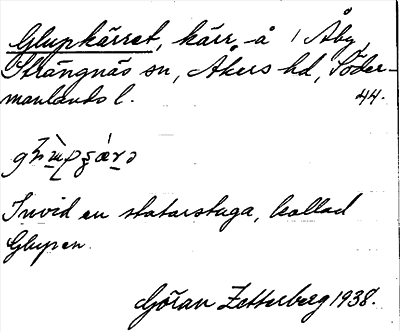 Glupkärret, kärr å / Åby,
Strängnäs sn, Åkers hd, Söder-
manlands l. 44.
Invid en statarstuga, kallad
Glupen.
Göran Zetterberg 1938.